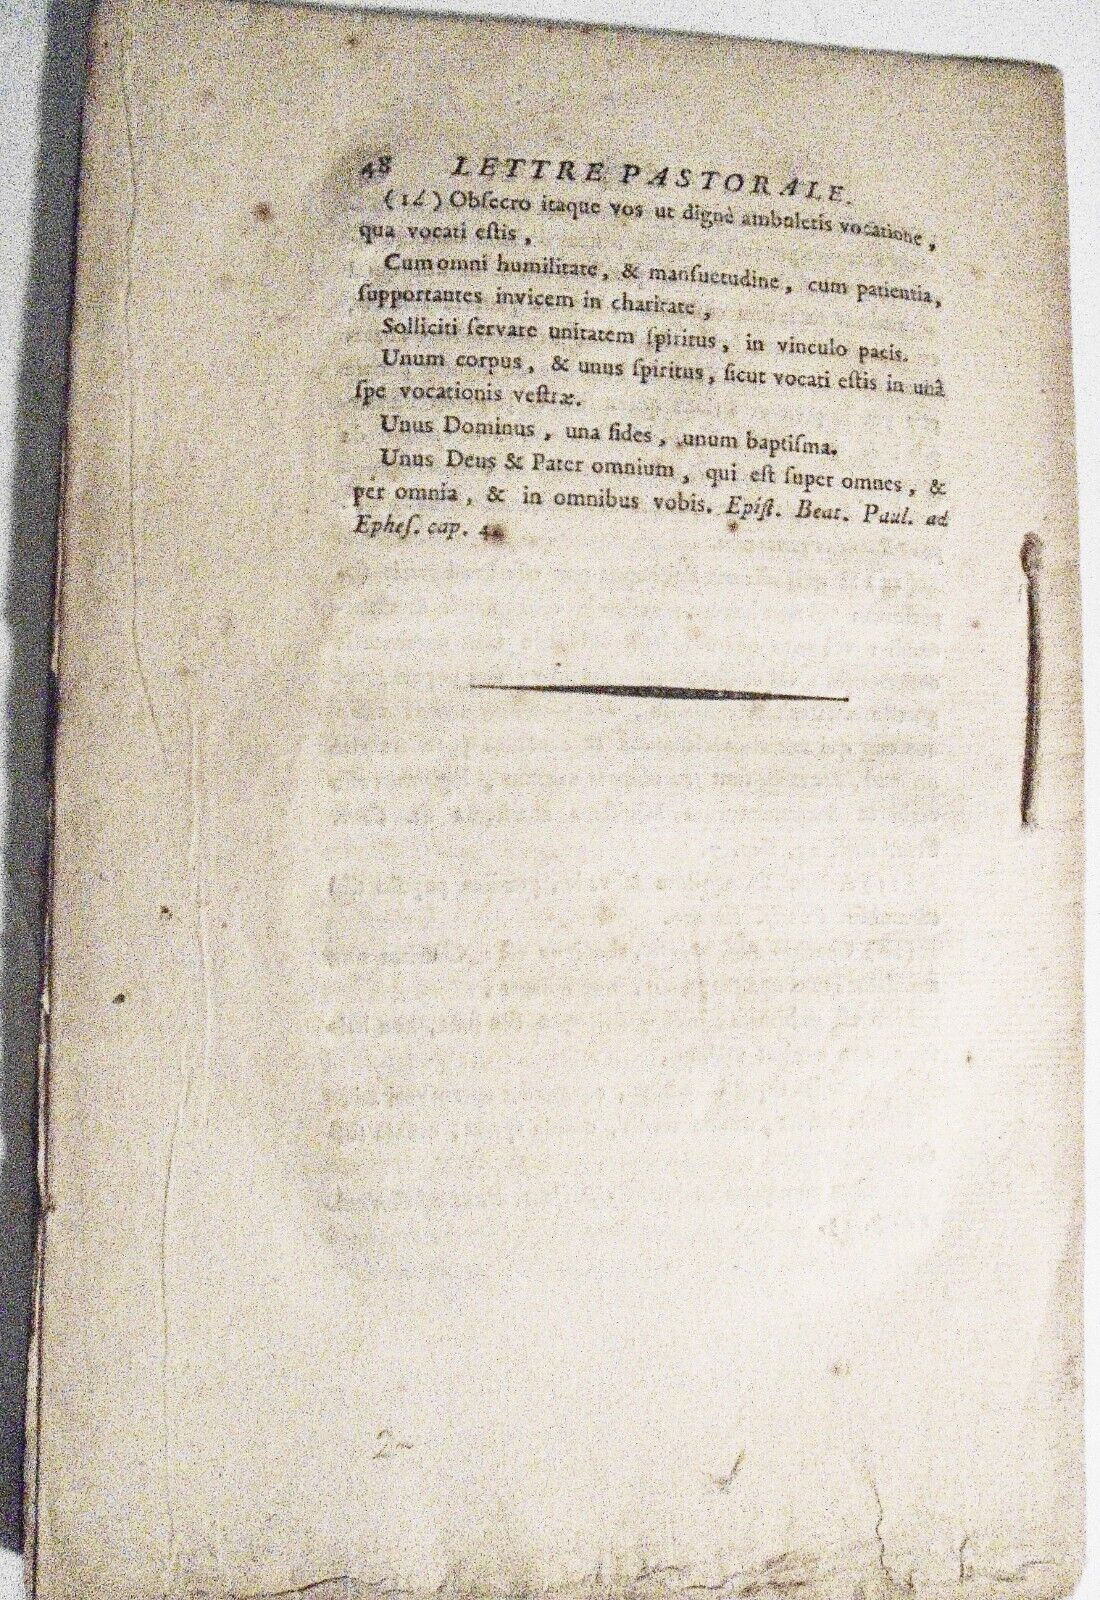 48 LETTRE PASTORALE.
(1L) Obſecro itaque vos ut dignè ambuletis vocatione,
qua vocati eſtis,
Cum omni humilitate, & manſuetudine, cum patientia,
ſupportantes invicem in charitate,
Solliciti ſervare unitatem ſpiritus, in vinculo pacis.
Unum corpus, & unus ſpiritus, ſicut vocati eſtis in unâ
ſpe vocationis veſtræ.
Unus Dominus, una fides, unum baptiſma.
Unus Deus & Pater omnium, qui eſt ſuper omnes, &
per omnia, & in omnibus vobis. Epiſt. Beat. Paul. ad
Epheſ. cap. 4.
2